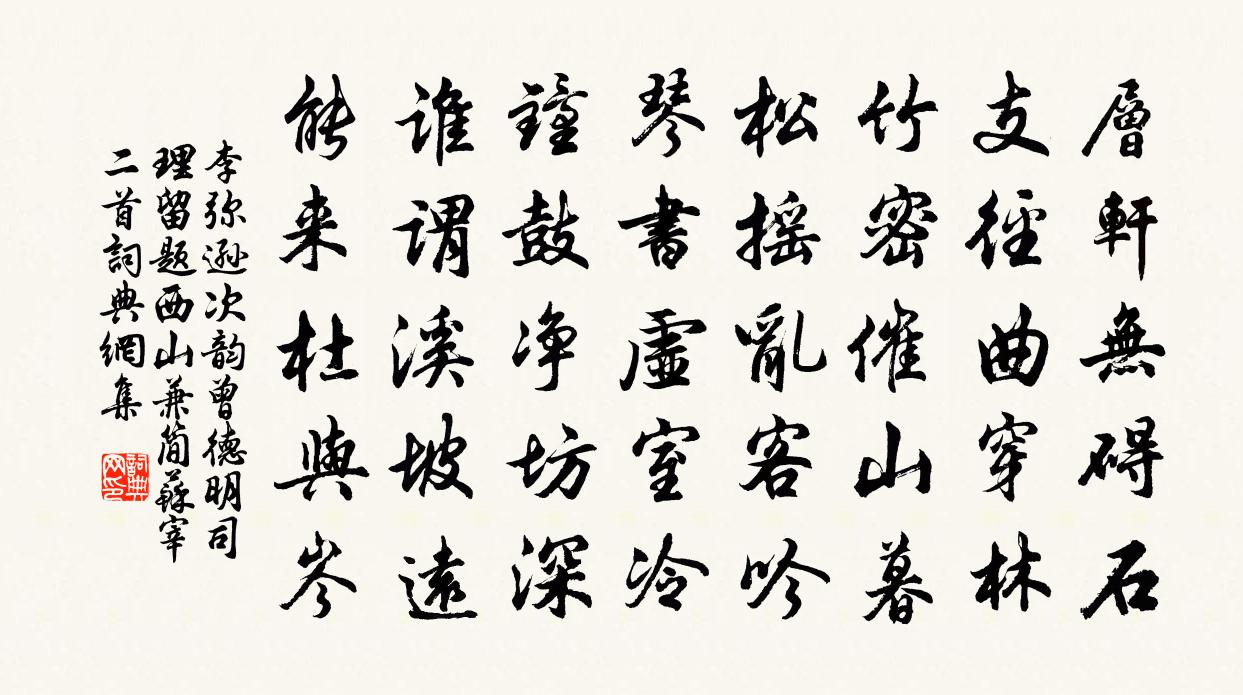 層軒無碍石
支徑曲穿林
竹密催山暮
松摇亂客吟
琴書虛室冷
鐘鼓净坊深
誰謂溪坡遠
能来杜與岑
李弥遜次韵曾德明司
理留题西山兼簡蘇宰
二首詞典網集
詞典网印